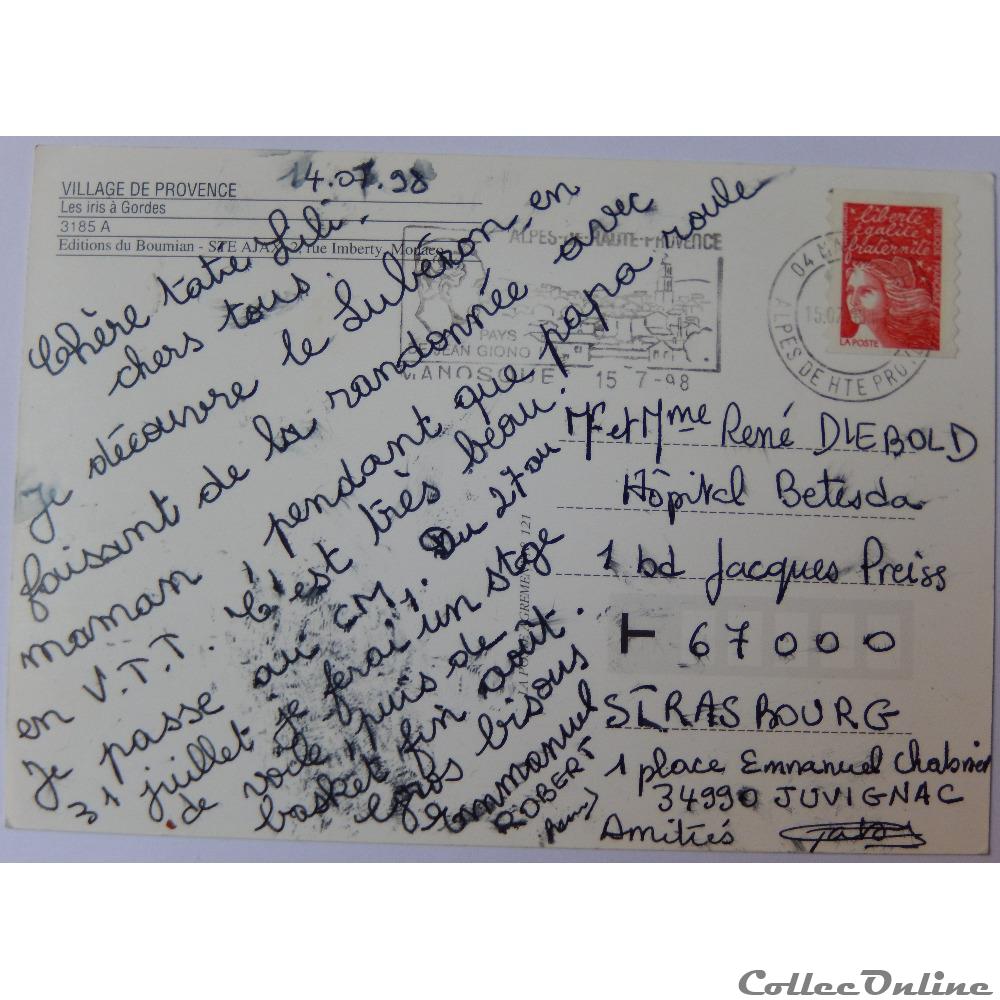 VILLAGE DE PROVENCE
Les iris à Gordes
3185 A
Editions du Boumian - STE AJAX, 2, rue Imberty, Monaco
14.07.98
Chère tatie Lili,
chers tous,
Je découvre le Lubéron, en
faisant de la randonnée avec
maman pendant que papa roule
en V.T.T. C'est très beau !
Je passe au CM1. Du 27 au
31 juillet je ferai un stage
de voile puis de
basket fin août.
Gros bisous
Emmanuel
ROBERT
ALPES-DE-HAUTE-PROVENCE
PAYS
DE JEAN GIONO
MANOSQUE 15 7-98
liberté
égalité
fraternité
LA POSTE
04 MA
15.07
ALPES DE HTE PROV
Mr et Mme René DIEBOLD
Hôpital Betesda
1 bd Jacques Preiss
67000
STRASBOURG
1 place Emmanuel Chabrier
34990 JUVIGNAC
Amitiés
CollecOnline